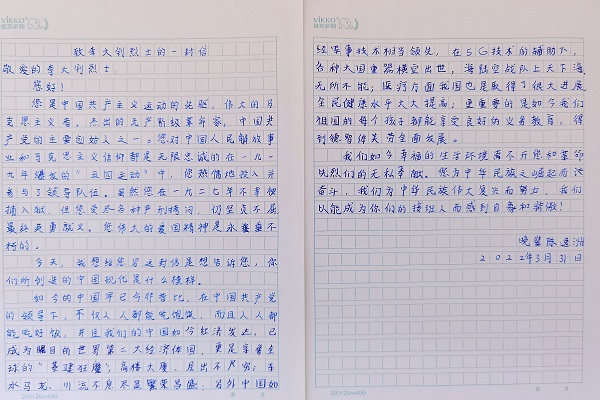 ViKKO
致李大钊烈士的一封信
敬爱的李大钊烈士:
您好!
您是中国共产主义运动的先驱,伟大的马
克思主义者,杰出的无产阶级革命家,中国共
产党的主要创始人之一。您对中国人民解放事
业和马克思主义信仰都是无限忠诚的在一九一
九年爆发的“五四运动”中,您热情地投入并
参与了领导队伍。虽然您在一九二七年不幸被
捕入狱,但您受尽各种严刑拷问,仍坚贞不屈
最终英勇献义。您伟大的爱国精神是永垂不
朽的。
今天,我想给您写这封信是想告诉您,你
们所创造的中国现在是什么模样。
如今的中国早已今非昔比,在中国共产党
的领导下,不仅人人都能吃饱饭,而且人人都
能吃好饭,并且我们的中国如今经济发达,已
成为瞩目的世界第二大经济体国,更是享誉全
球的“基建狂魔”,高楼大厦,层出不穷;车
水马龙、川流不息尽显繁荣昌盛;另外中国如
20×20=400
ViKKO
经军事技术相当领先,在5G技术的辅助下,
各种大国重器横空出世,海陆空战队上天下海
无所不能;医疗方面我国也是取得了很大进展
全民健康水平大大提高;更重要的是如今我们
祖国的每个孩子都能享受良好的义务教育,得
到德智体美劳全面发展。
我们如今幸福的生活环境离不开您和革命
先烈们的无私奉献。您为中华民族之崛起而
奋斗,我们为中华民族伟大复兴而努力,我们
以能成为你们的接班人而感到自豪和骄傲!
晚辈陈
2022年3月31日
20×20=400